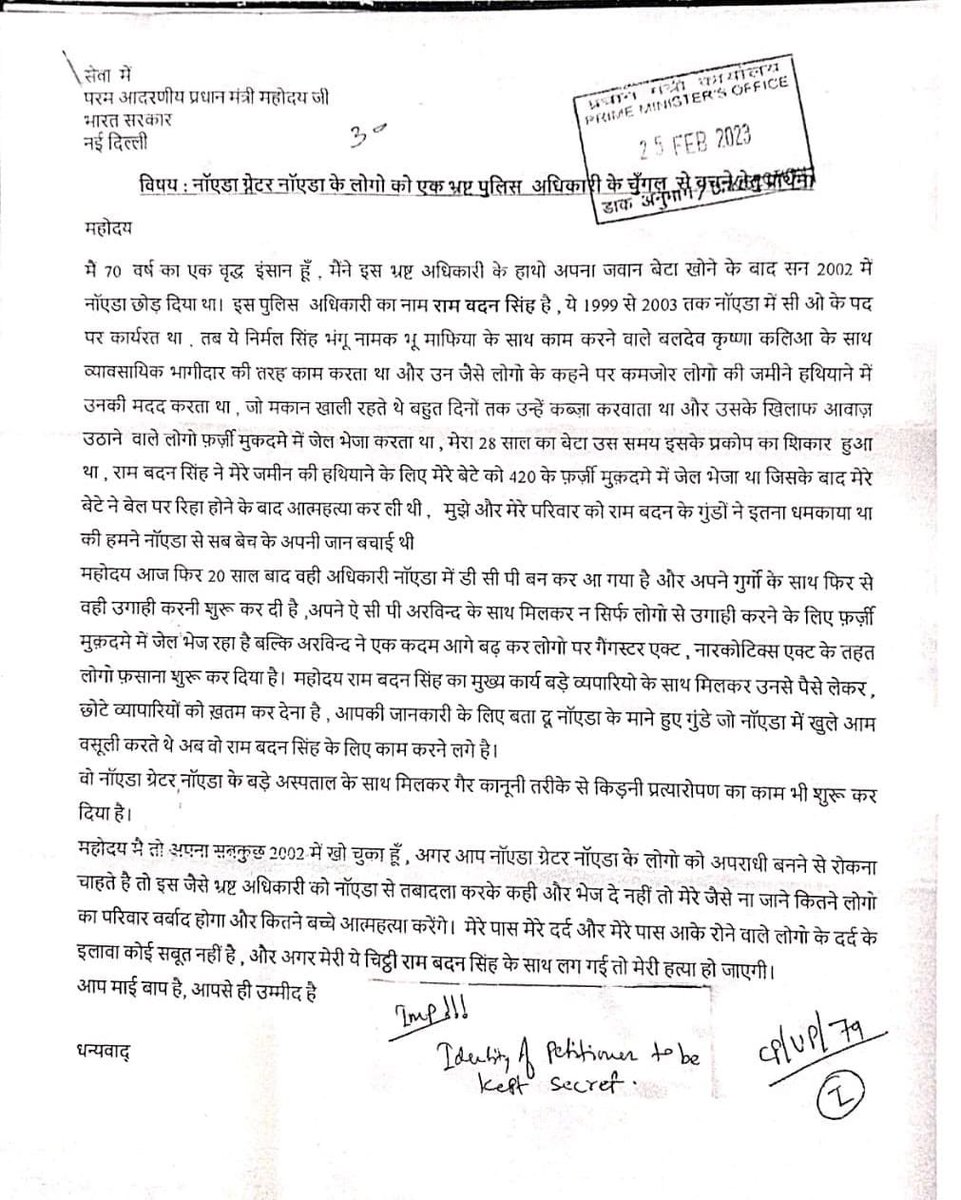 सेवा में
परम आदरणीय प्रधान मंत्री महोदय जी
भारत सरकार
नई दिल्ली
30
प्रधान मंत्री कार्यालय
PRIME MINISTER'S OFFICE
25 FEB 2023
डाक अनुभाग
विषय : नॉएडा ग्रेटर नॉएडा के लोगो को एक भ्रष्ट पुलिस अधिकारी के चुँगल से बचने हेतु प्रार्थना
महोदय
मै 70 वर्ष का एक वृद्ध इंसान हूँ , मैंने इस भ्रष्ट अधिकारी के हाथो अपना जवान बेटा खोने के बाद सन 2002 में
नॉएडा छोड़ दिया था। इस पुलिस अधिकारी का नाम राम बदन सिंह है , ये 1999 से 2003 तक नॉएडा में सी ओ के पद
पर कार्यरत था , तब ये निर्मल सिंह भंगू नामक भू माफिया के साथ काम करने वाले बलदेव कृष्णा कलिआ के साथ
व्यावसायिक भागीदार की तरह काम करता था और उन जैसे लोगो के कहने पर कमजोर लोगो की जमीने हथियाने में
उनकी मदद करता था , जो मकान खाली रहते थे बहुत दिनों तक उन्हें कब्ज़ा करवाता था और उसके खिलाफ आवाज़
उठाने वाले लोगो फ़र्ज़ी मुकदमे में जेल भेजा करता था , मेरा 28 साल का बेटा उस समय इसके प्रकोप का शिकार हुआ
था , राम बदन सिंह ने मेरे जमीन की हथियाने के लिए मेरे बेटे को 420 के फ़र्ज़ी मुक़दमे में जेल भेजा था जिसके बाद मेरे
बेटे ने बेल पर रिहा होने के बाद आत्महत्या कर ली थी , मुझे और मेरे परिवार को राम बदन के गुंडों ने इतना धमकाया था
की हमने नॉएडा से सब बेच के अपनी जान बचाई थी
महोदय आज फिर 20 साल बाद वही अधिकारी नॉएडा में डी सी पी बन कर आ गया है और अपने गुर्गो के साथ फिर से
वही उगाही करनी शुरू कर दी है ,अपने ऐ सी पी अरविन्द के साथ मिलकर न सिर्फ लोगो से उगाही करने के लिए फ़र्ज़ी
मुक़दमे में जेल भेज रहा है बल्कि अरविन्द ने एक कदम आगे बढ़ कर लोगो पर गैंगस्टर एक्ट , नारकोटिक्स एक्ट के तहत
लोगो फ़साना शुरू कर दिया है। महोदय राम बदन सिंह का मुख्य कार्य बड़े व्यपारियो के साथ मिलकर उनसे पैसे लेकर ,
छोटे व्यापारियों को ख़तम कर देना है , आपकी जानकारी के लिए बता दू नॉएडा के माने हुए गुंडे जो नॉएडा में खुले आम
वसूली करते थे अब वो राम बदन सिंह के लिए काम करने लगे है।
वो नॉएडा ग्रेटर नॉएडा के बड़े अस्पताल के साथ मिलकर गैर कानूनी तरीके से किड़नी प्रत्यारोपण का काम भी शुरू कर
दिया है।
महोदय मै तो अपना सबकुछ 2002 में खो चुका हूँ , अगर आप नॉएडा ग्रेटर नॉएडा के लोगो को अपराधी बनने से रोकना
चाहते है तो इस जैसे भ्रष्ट अधिकारी को नॉएडा से तबादला करके कही और भेज दे नहीं तो मेरे जैसे ना जाने कितने लोगो
का परिवार वर्वाद होगा और कितने बच्चे आत्महत्या करेंगे। मेरे पास मेरे दर्द और मेरे पास आके रोने वाले लोगो के दर्द के
इलावा कोई सबूत नहीं है , और अगर मेरी ये चिट्ठी राम बदन सिंह के साथ लग गई तो मेरी हत्या हो जाएगी।
आप माई बाप है, आपसे ही उम्मीद है
धन्यवाद्
Imp!!!
Identity of Petitioner to be
kept secret.
CP/UP/79
I